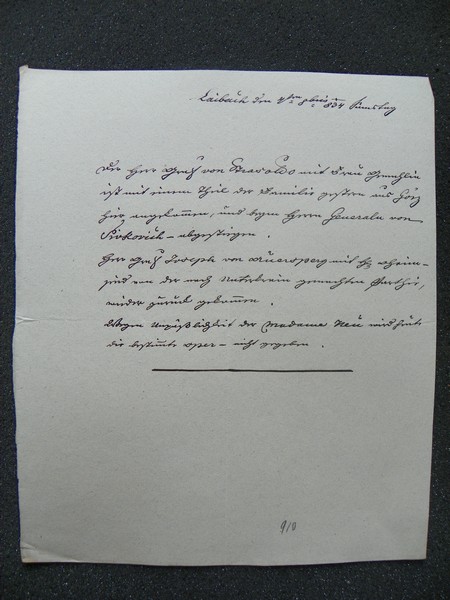 Laibach den 4ten 8bris 834 Samstag
Der Herr Graf von Strasoldo mit Frau Gemahlin
ist mit einem Theil der Familie gestern aus Görz
hier angekommen, und beym Herrn Generalen von
Sivkovich – abgestiegen.
Herr Graf Joseph von Auersperg mit
von der nach Unterkrain gemachten Parthie,
wieder zurück gekommen.
Wegen Unpäßlichkeit der Madame Neu wird heute
die bestimmte Oper – nicht gegeben.
9/0